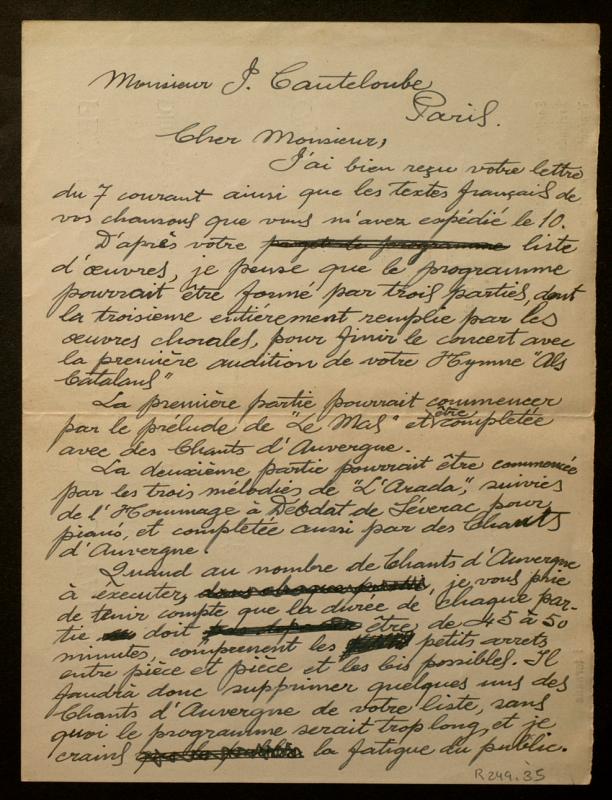 Monsieur J. Canteloube,
Paris.
Cher Monsieur,
J'ai bien reçu votre lettre
du 7 courant ainsi que les textes français de
vos chansons que vous m'avez expédié le 10.
D'après votre projet de programme liste
d'œuvres, je pense que le programme
pourrait être formé par trois parties, dont
la troisième entièrement remplie par les
œuvres chorales, pour finir le concert avec
la première audition de votre Hymne "Als
Catalans"
La première partie pourrait commencer
par le prélude de "Le Mas" et être completée
avec des Chants d'Auvergne.
La deuxième partie pourrait être commencée
par les trois mélodies de "L'Arada", suivies
de l'Hommage à Déodat de Séverac pour
piano, et completée aussi par des Chants
d'Auvergne.
Quand au nombre de Chants d'Auvergne
à exécuter, dans chaque partie, je vous prie
de tenir compte que la durée de chaque par-
tie doit être de 45 à 50
minutes, comprenent les petits arrets
entre pièce et pièce et les bis possibles. Il
faudra donc supprimer quelques uns des
Chants d'Auvergne de votre liste, sans
quoi le programme serait trop long, et je
crains la fatigue du public.
R.249.35